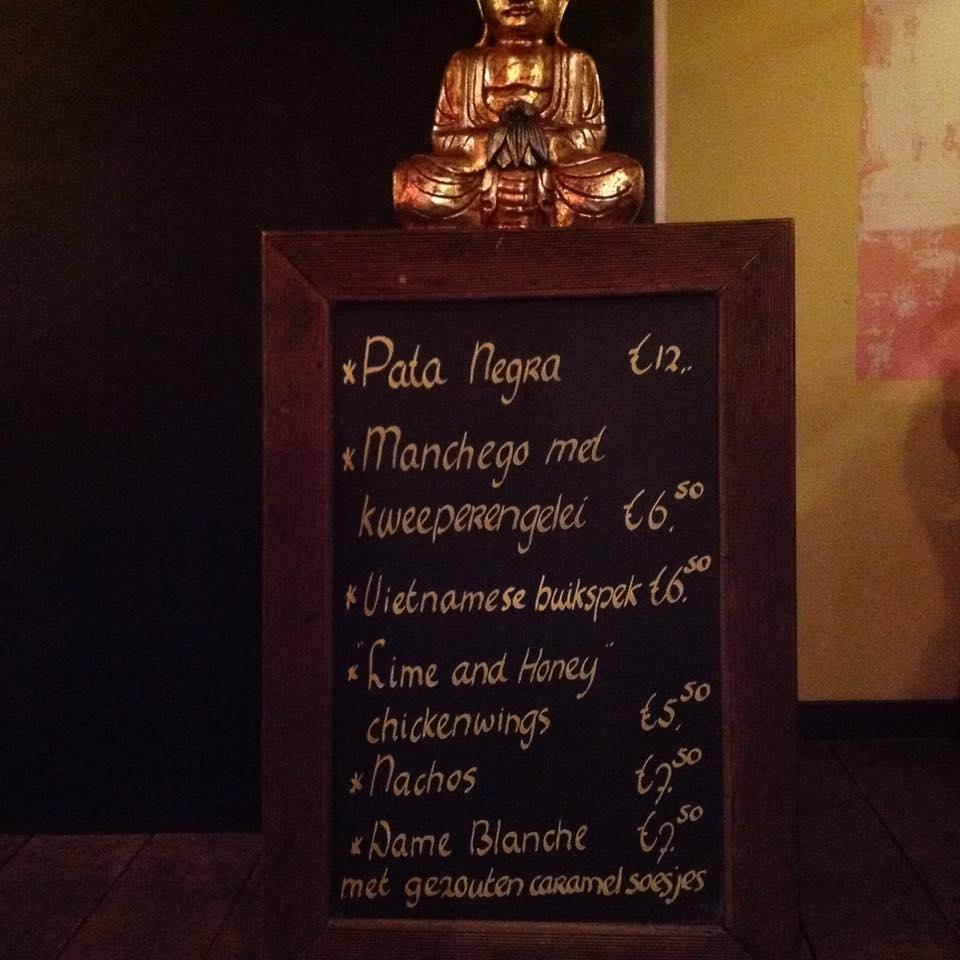 *Pata Negra €12,,
*Manchego met
kweeperengelei €6,50
*Vietnamese buikspek €6,50
*"Lime and Honey"
chickenwings €5,50
*Nachos €7,50
*Dame Blanche €7,50
met gezouten caramel soesjes